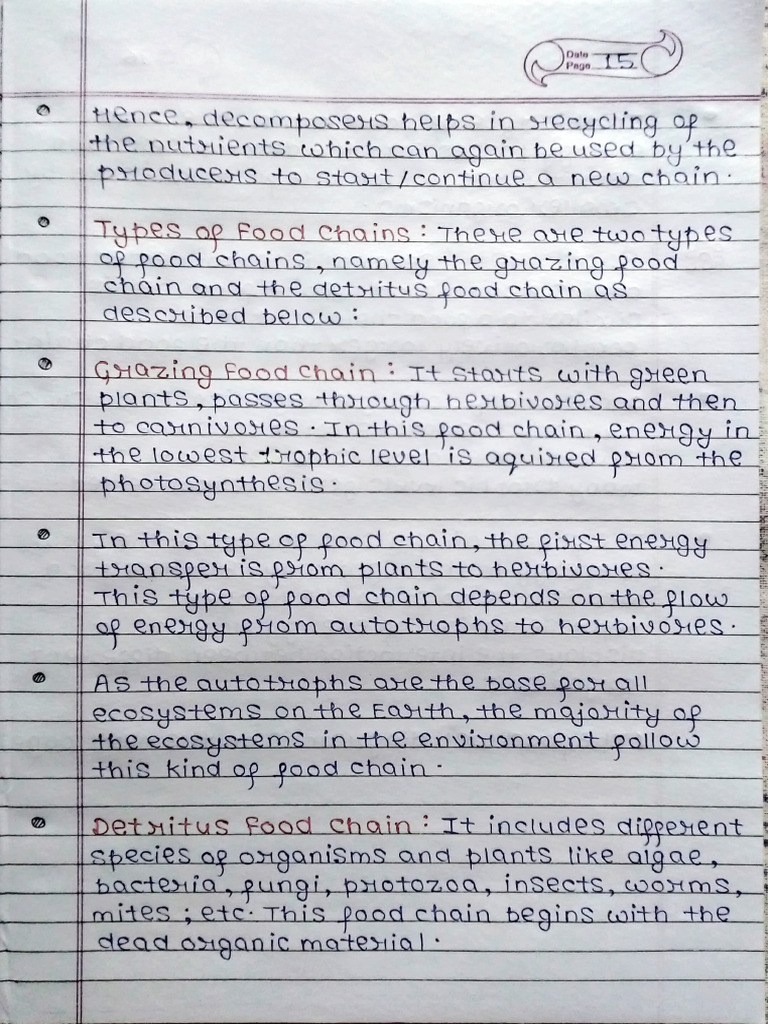 Date
Page 15
Hence, decomposers helps in recycling of
the nutrients which can again be used by the
producers to start/continue a new chain.
Types of Food Chains: There are two types
of food chains, namely the grazing food
chain and the detritus food chain as
described below:
Grazing Food Chain: It starts with green
plants, passes through herbivores and then
to carnivores. In this food chain, energy in
the lowest trophic level is aquired from the
photosynthesis.
In this type of food chain, the first energy
transfer is from plants to herbivores.
This type of food chain depends on the flow
of energy from autotrophs to herbivores.
As the autotrophs are the base for all
ecosystems on the Earth, the majority of
the ecosystems in the environment follow
this kind of food chain.
Detritus Food Chain: It includes different
species of organisms and plants like algae,
bacteria, fungi, protozoa, insects, worms,
mites; etc. This food chain begins with the
dead organic material.